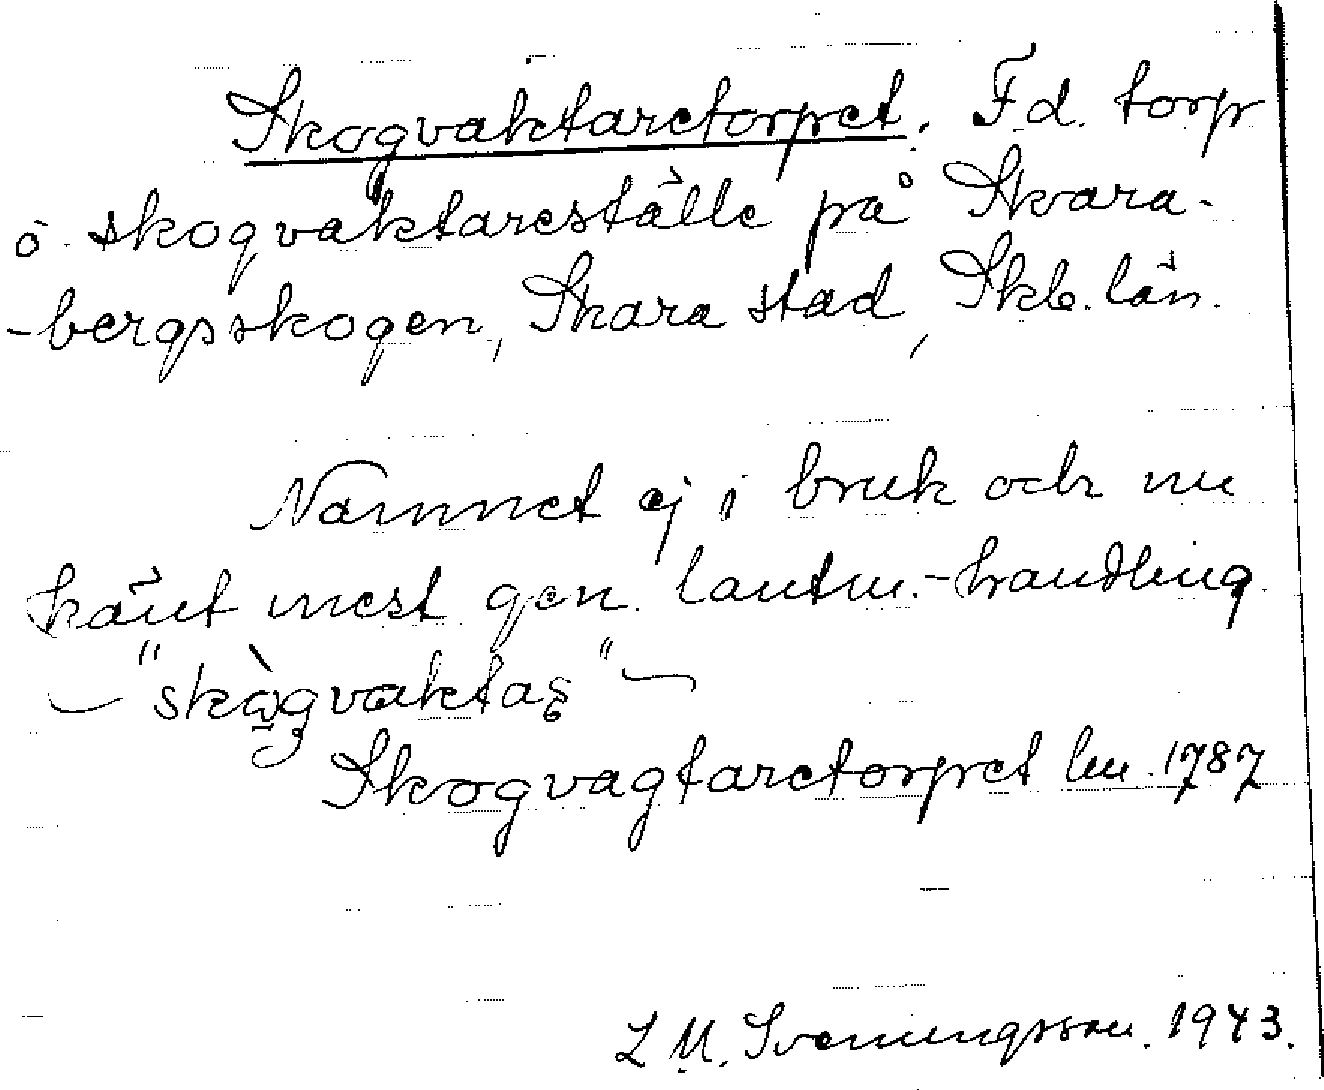 Skogvaktaretorpet. F.d. torp
o. skogvaktareställe på Skara-
-bergsskogen, Skara stad, Skb. län.
Namnet ej i bruk och nu
känt mest gen. lantm.-handling
— "skògvaktas" —
Skogvagtaretorpet lm. 1787
L M. Sveningsson. 1943.